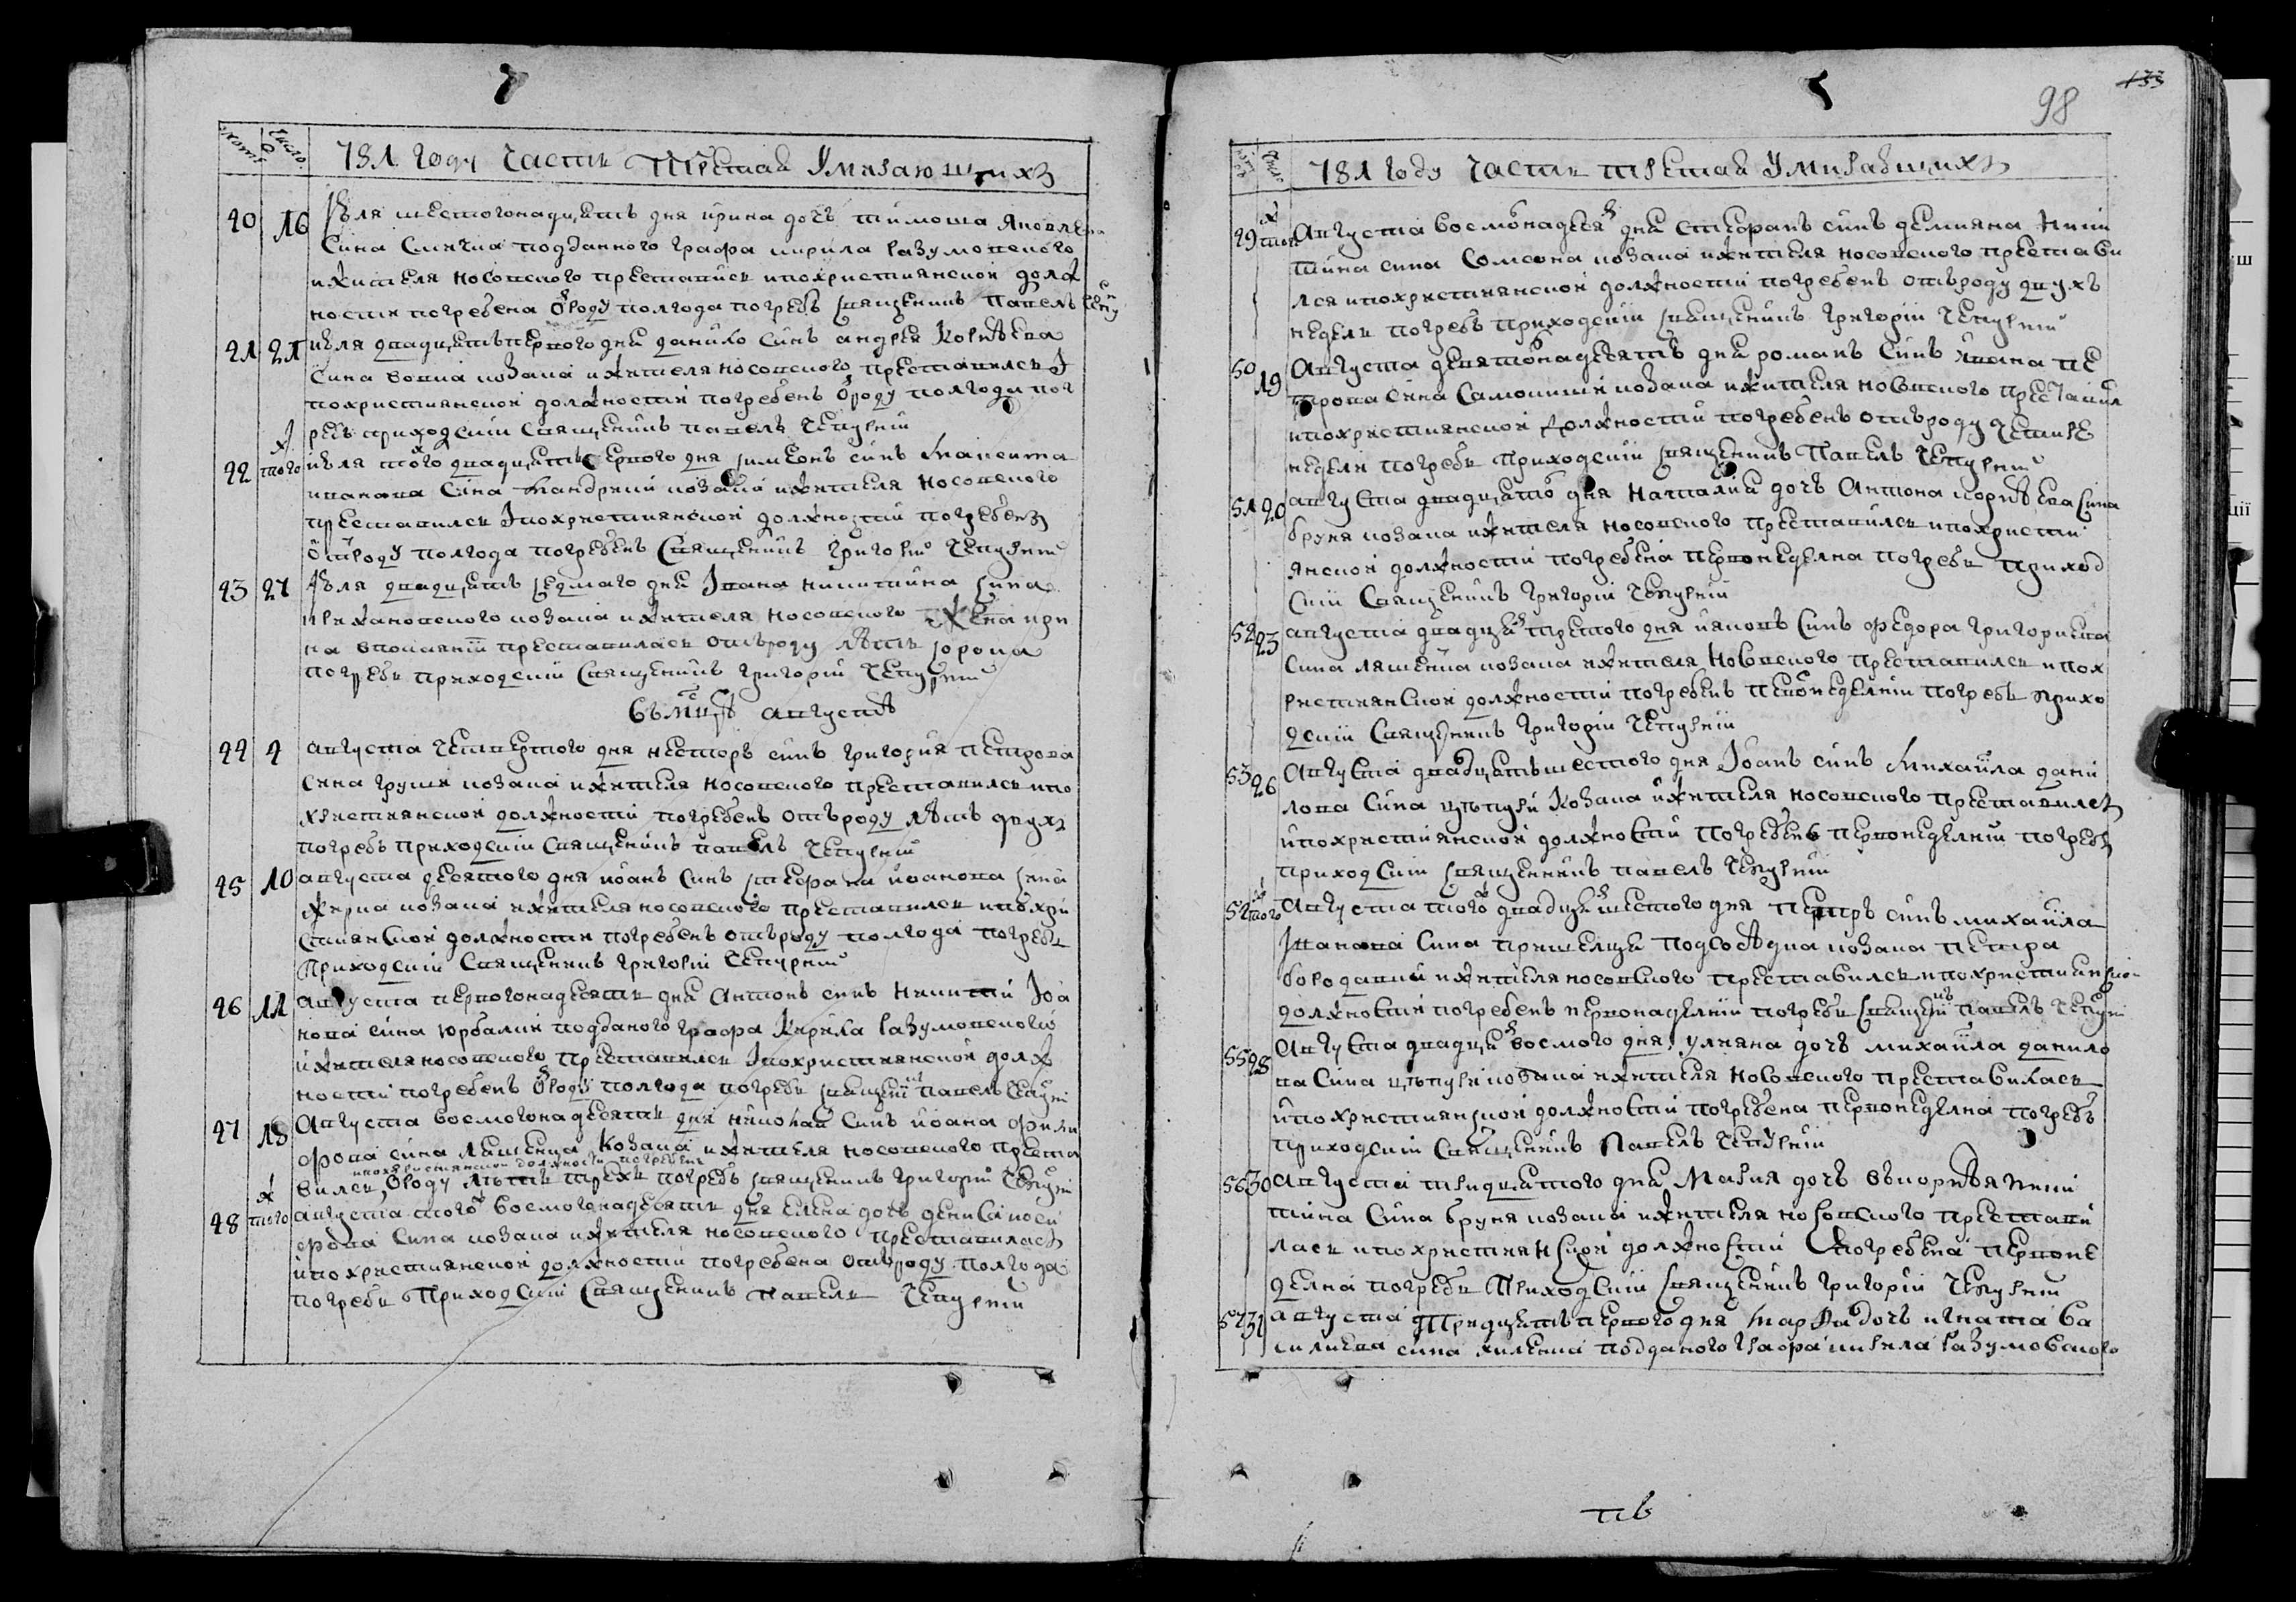 781 году часть третая Умираю щихъ
40 16 Июля шестогонадцать дня ирина дочъ тимоша Яковлева
Сина подданного графа кирила Разумовского
и жителя носовского преставись и похристиянской долж
ности погребена ѿроду полгода погребъ священикъ Павелъ
41 21 июля двадцатьпервого дня данило Синъ андрея Корнѣева
Сина вовка козака и жителя носовского преставился и
похристиянской должности погребенъ ѿроду полгода пог
ребъ приходский священикъ павелъ Чепурний
42 того ж июля того ж двадцатьпервого дня симеонъ синъ
иванова Сина козака и жителя носовского
преставился и похристиянской должности погребенъ
ѿтроду полгода погребенъ Священикъ Григорий Чепурний
43 27 Июля двадцать седмаго дня Ивана никитина сина
козака и жителя носовского жена ири
на впокаянии преставилась отъроду лѣтъ сорока
погребъ приходский священикъ григорий Чепурний
въ мцѣ августѣ
44 4 августа четвертого дня несторъ синъ григория петрова
Сина груши козака и жителя носовского преставился и по
християнской должности погребенъ отъроду лѣтъ двухъ
погребъ приходский священикъ павелъ Чепурний
45 10 августа десятого дня иоанъ Синъ стефана иоанова сина
козака и жителя носовского преставился и похри
стиянской должности погребенъ отъроду полгода погребъ
Приходский Священикъ григорий Чепурний
46 11 августа первогонадесять дня Антонъ синъ Никити Іоа
нова сина подданого графа Кирила Разумовского
и жителя носовского преставился и похристиянской долж
ности погребенъ ѿроду полгода погребъ священикъ павелъ Чепурний
47 18 Августа восмогонадесять дня николай Синъ иоана
фова сина Ляшенка Козака и жителя носовского преста
и похристиянской должности погребенъ
вился, ѿроду лѣтъ трехъ погребъ священикъ григорий Чепурний
48 того ж августа того ж восмогонадесять дня елена дочъ дениса
фова Сина козака и жителя носовского преставилась
и похристиянской должности погребена отъроду полгода
погребъ Приходский Священикъ павелъ Чепурний
133
98
781 году часть третая Умиравшихъ
49 того ж Августа восмонадеся дня стефанъ синъ демияна Ники
тина сина козака и жителя носовского престави
лся и похристиянской должности погребенъ отъроду двухъ
недель погребъ приходский священикъ григорий Чепурний
50 19 Августа девятонадесять дня романъ Синъ ивана пе
трова Сина козака и жителя носовского преставил
и похристиянской должности погребенъ отъроду четире
недели погребъ Приходский священикъ Павелъ Чепурний
51 20 августа двадцатого дня Наталия дочъ Антона корнѣева Сина
бруя козака и жителя носовского преставилсь и похристи
янской должности погребена первонеделна погребъ приход
ский Священикъ григорий Чепурний
52 23 августа двадцать третого дня иаковъ Синъ федора григориева
Сина ляшенка козака и жителя Носовского преставился и пох
ристиянской должности погребенъ первонеделний погребъ прихо
дский Священикъ григорий Чепурний
53 26 Августа двадцатьшестого дня Іоанъ синъ Михайла дани
лова Сина Козака и жителя носовского преставился
и похристиянской должности погребенъ первонеделний погребъ
приходский священикъ павелъ Чепурний
54 того ж Августа того ж двадцать шестого дня Петръ синъ михайла
Іванова Сина козака петра
и жителя носовского преставился и похристиянской
должности погребенъ первонаделний погребъ священикъ павелъ Чепурний
55 28 Августа двадцать восмого дня улияна дочъ михайла данило
ва Сина козака и жителя Носовского преставилась
и похристиянской должности погребена первонеделна погребъ
приходский Священикъ Павелъ Чепурний
56 30 августа тридцатого дня Мария дочъ Ники
тина Сина бруя козака и жителя носовского престави
лась и похристиянской должности погребена первоне
делна погребъ Приходский священикъ григорий Чепурний
57 31 августа Тридцатьпервого дня марфа дочъ игната Ва
силиева сина подданого графа кирила Разумовского
пв